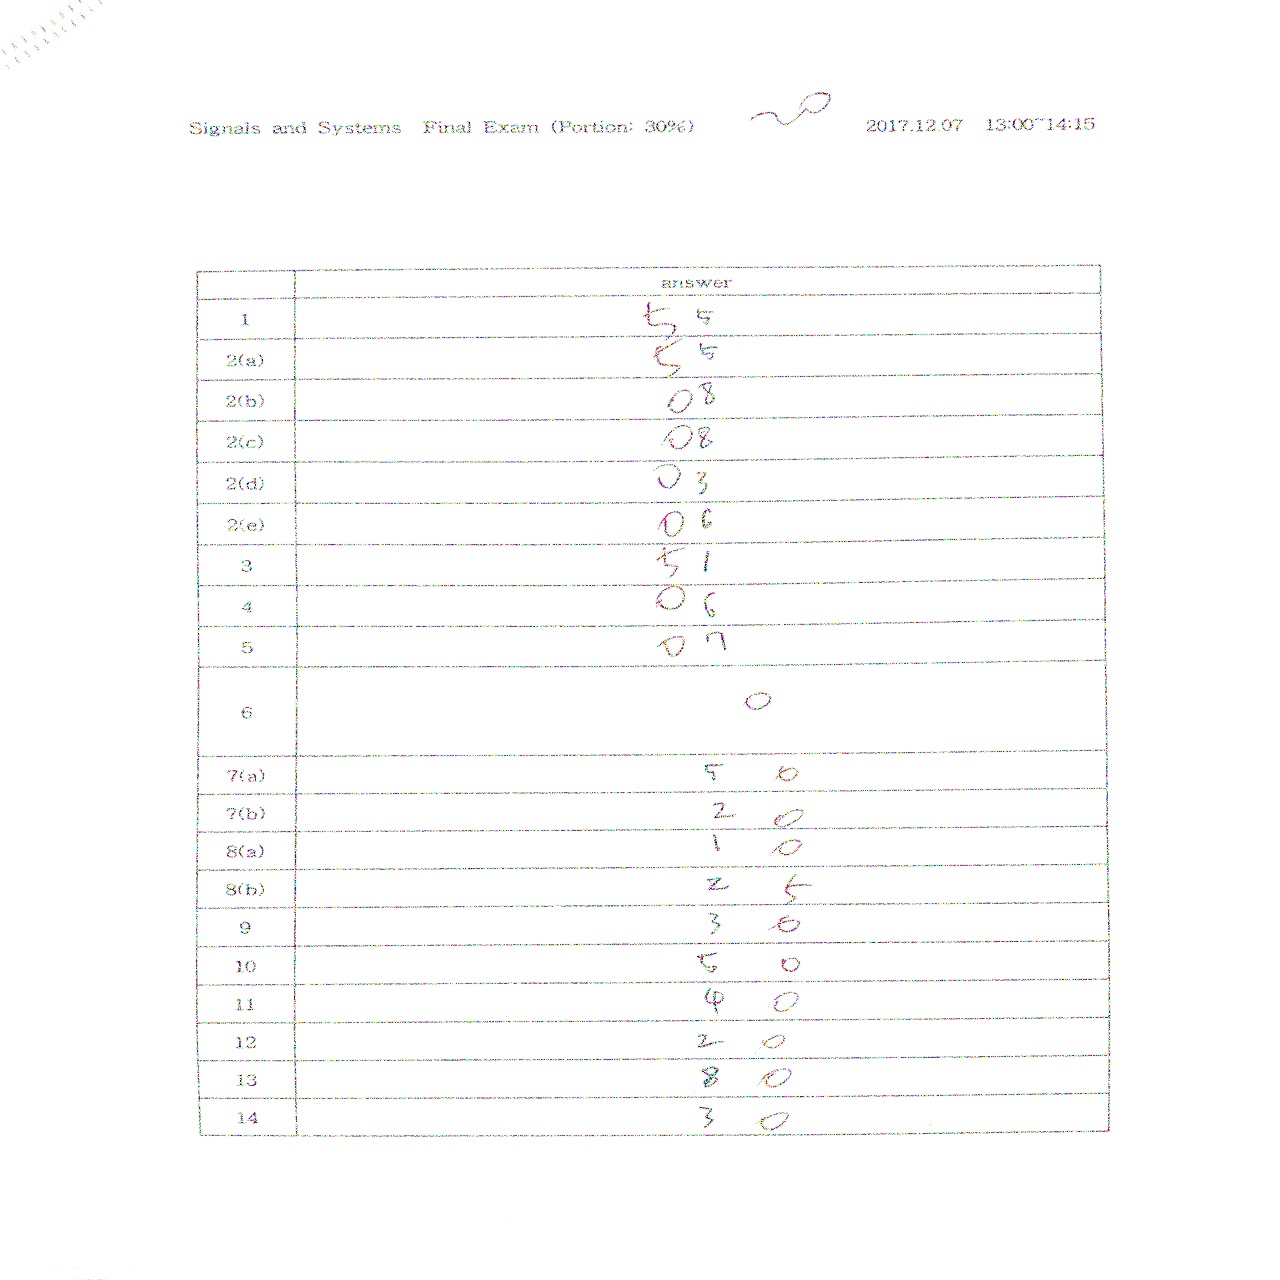 Signals and Systems Final Exam (Portion: 30%) 20 2017.12.07 13:00~14:15
answer
1 5 5
2(a) 5 5
2(b) 0 8
2(c) 0 8
2(d) 0 3
2(e) 0 6
3 5 1
4 0 6
5 0 7
6 0
7(a) 5 0
7(b) 2 0
8(a) 1 0
8(b) 2 5
9 3 0
10 5 0
11 4 0
12 2 0
13 8 0
14 3 0